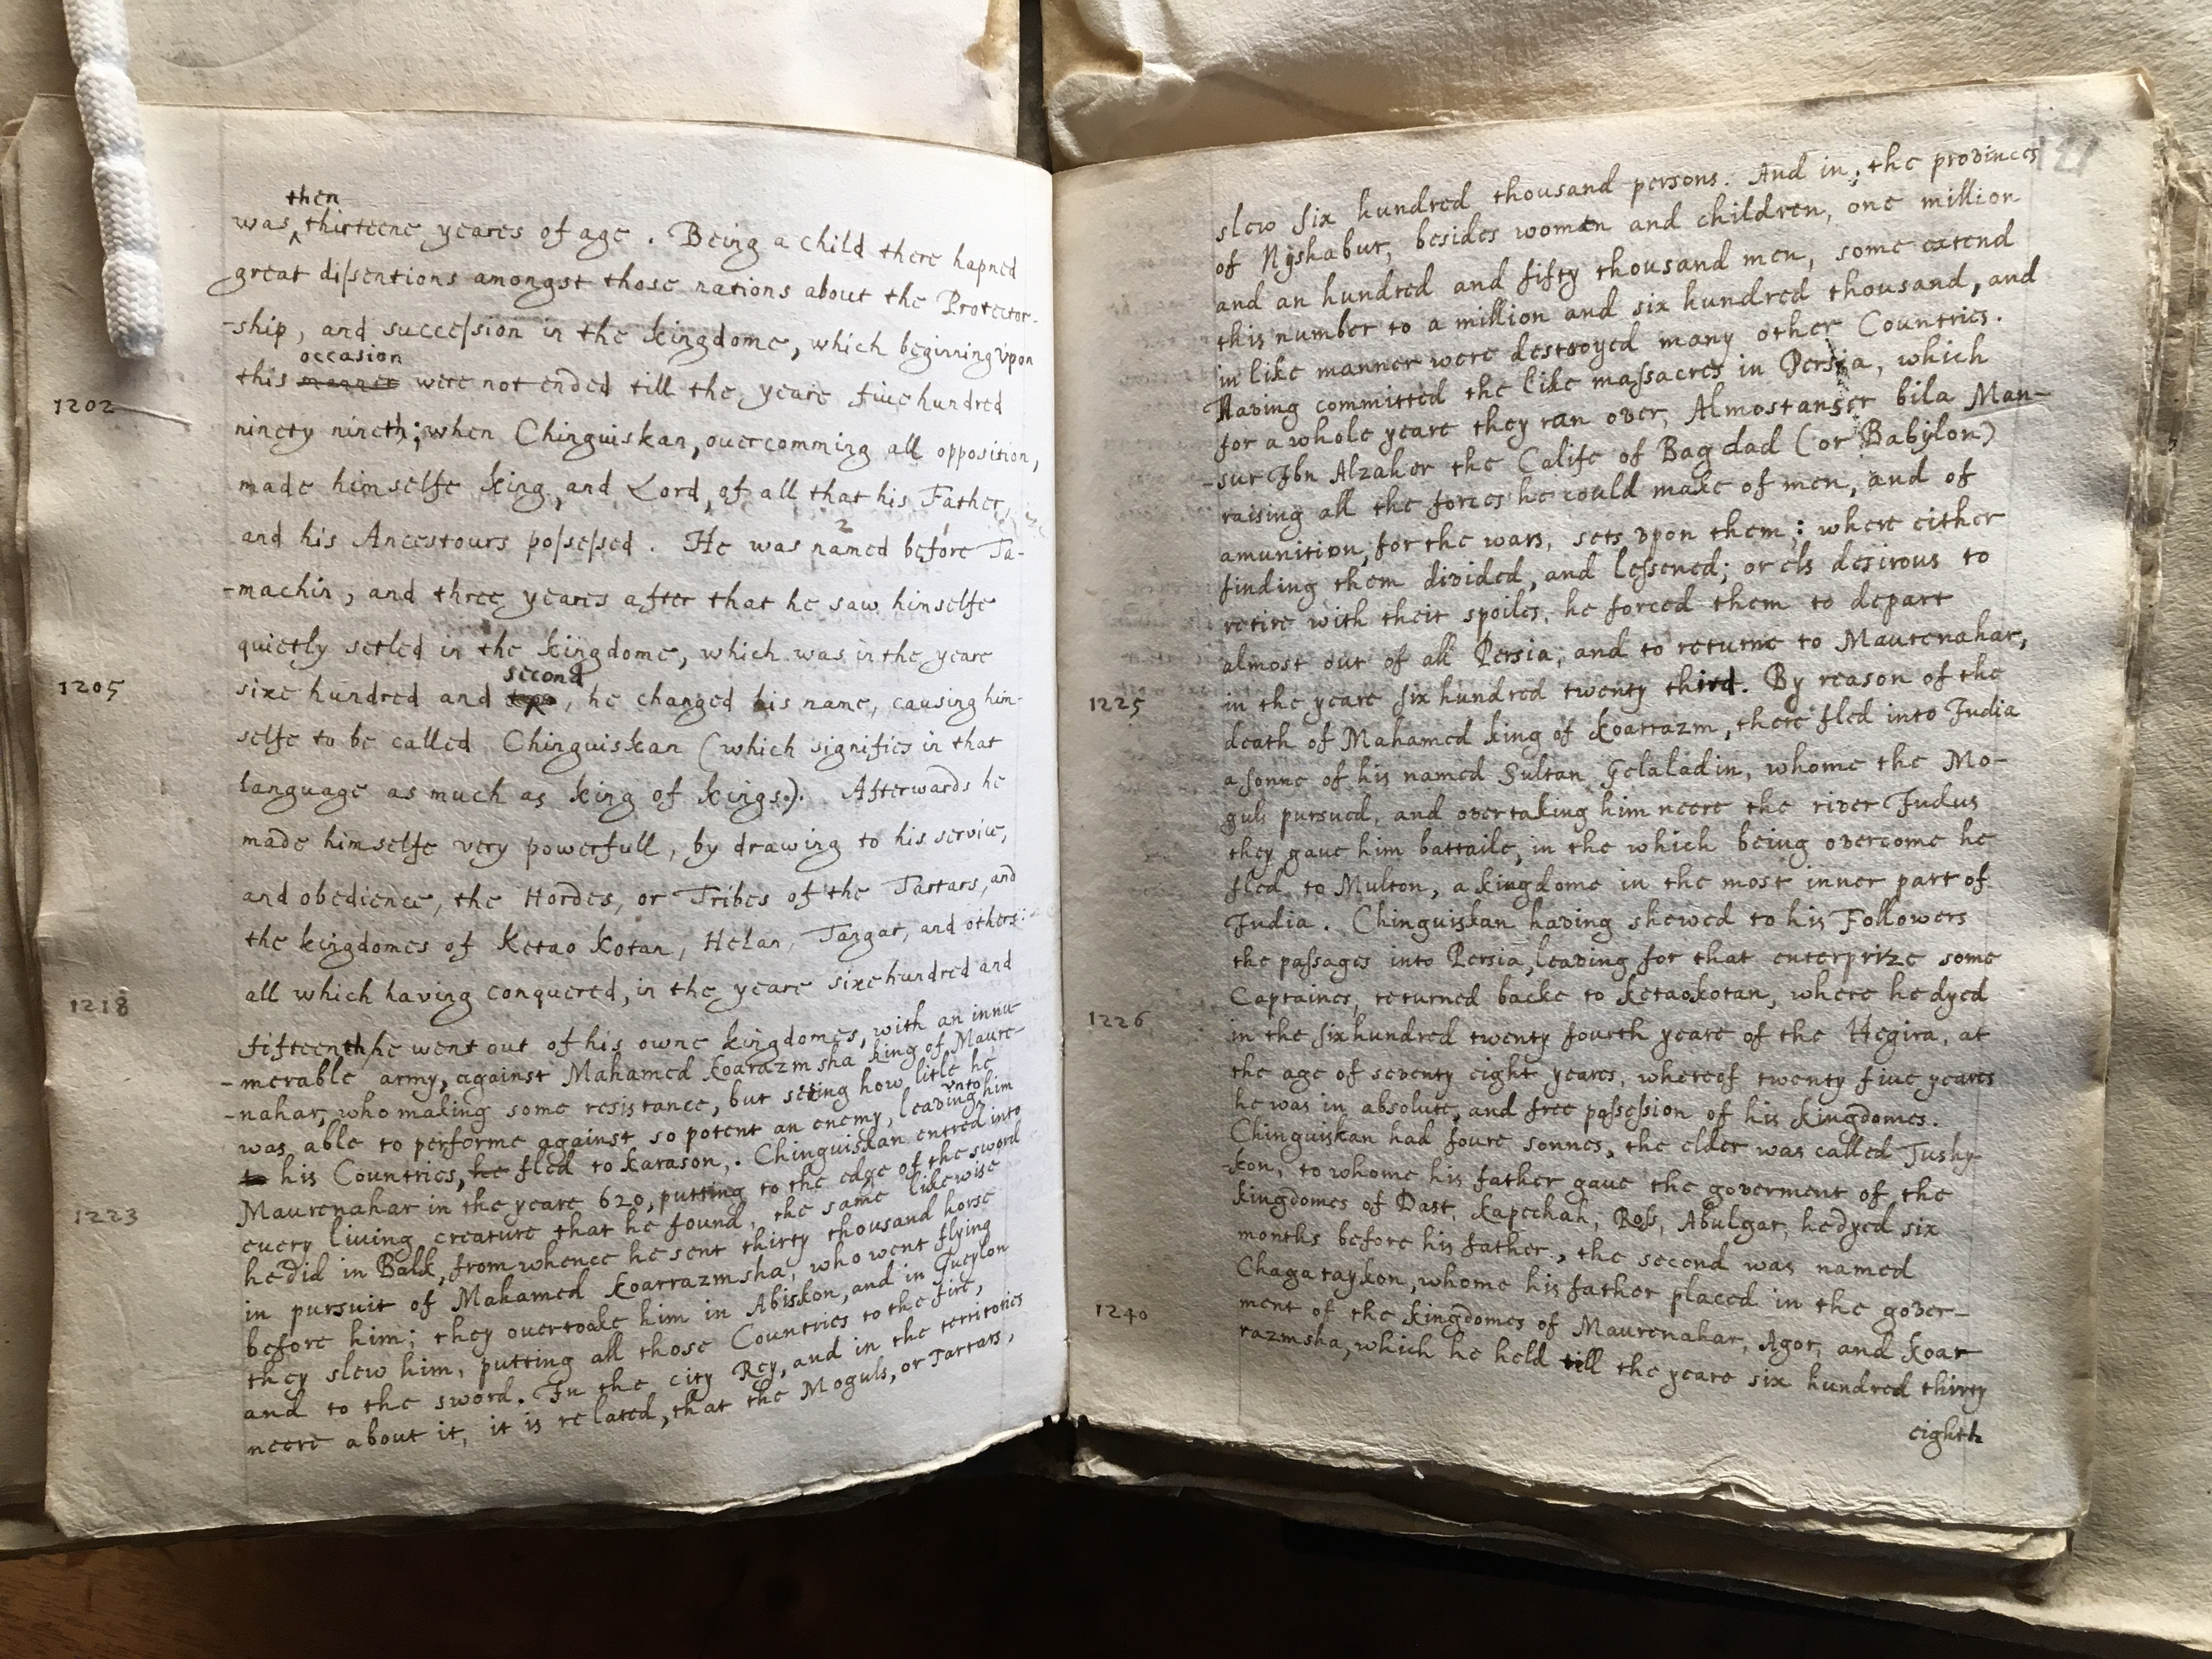 then
was thirteene yeares of age . Being a child there hapned
great dissentions amongst those nations about the Protector-
-ship, and succession in the kingdome, which beginning vpon
occasion
this were not ended till the yeare fiue hundred
1202
ninety nineth; when Chinguiskan, ouercomming all opposition,
made himselfe king, and Lord, of all that his Father,
and his Ancestours possessed . He was named before Ta-
-machin, and three yeares after that he saw himselfe
quietly setled in the kingdome, which was in the yeare
second
1205 sixe hundred and two, he changed his name, causing him-
selfe to be called Chinguiskan (which signifies in that
language as much as king of kings.). Afterwards he
made himselfe very powerfull, by drawing to his service,
and obedience, the Hordes, or Tribes of the Tartars, and
the kingdomes of Ketao kotan, Helan, Tangat, and others:
all which having conquered, in the yeare sixe hundred and
1218
fifteenth he went out of his owne kingdomes, with an innu-
-merable army, against Mahamed Koarazmsha king of Maure-
-nahar, who making some resistance, but seeing how litle he
was able to performe against so potent an enemy, leaving vnto him
to his Countries, he fled to karason, . Chinguiskan entred into
Maurenahar in the yeare 620, putting to the edge of the sword
1223 euery living creature that he found, the same likewise
he did in Balk, from whence he sent thirty thousand horse
in pursuit of Mahamed Koarrazmsha, who went flying
before him; they overtooke him in Abiskon, and in Gueylon
they slew him, putting all those Countries to the fire,
and to the sword. In the city Rey, and in the territories
neere about it, it is related, that the Moguls, or Tartars,
121
slew six hundred thousand persons. And in; the provinces
of Nyshabur, besides women and children, one million
and an hundred and fifty thousand men, some extend
this number to a million and six hundred thousand, and
in like manner were destroyed many other Countries.
Having committed the like massacres in Persia, which
for a whole yeare they ran over, Almostanser bila Man-
-sur Ibn Alzaher the Calife of Bagdad (or Babylon)
raising all the forces he could make of men, and of
amunition, for the wars, sets vpon them; where either
finding them divided, and lessened; or els desirous to
retire with their spoiles, he forced them to depart
almost out of all Persia, and to returne to Maurenahar,
1225 in the yeare six hundred twenty third. By reason of the
death of Mahamed king of Koarrazm, there fled into India
a sonne of his named Sultan Gelaladin, whome the Mo-
guls pursued, and overtaking him neere the river Indus
they gaue him battaile, in the which being overcome he
fled to Multon, a kingdome in the most inner part of
India . Chinguiskan having shewed to his Followers
the passages into Persia, leaving for that enterprize some
Captaines, returned backe to Ketaokotan, where he dyed
1226 in the six hundred twenty fourth yeare of the Hegira, at
the age of seventy eight yeares, whereof twenty fiue yeares
he was in absolute, and free possession of his kingdomes.
Chinguiskan had foure sonnes, the elder was called Tushy-
kon, to whome his father gaue the goverment of the
kingdomes of Dast, Kapechah, Ross, Abulgar, he dyed six
months before his father, the second was named
Chagataykon, whome his father placed in the gover-
1240 ment of the kingdomes of Maurenahar, Agor, and Koar-
razmsha, which he held till the yeare six hundred thirty
eighth